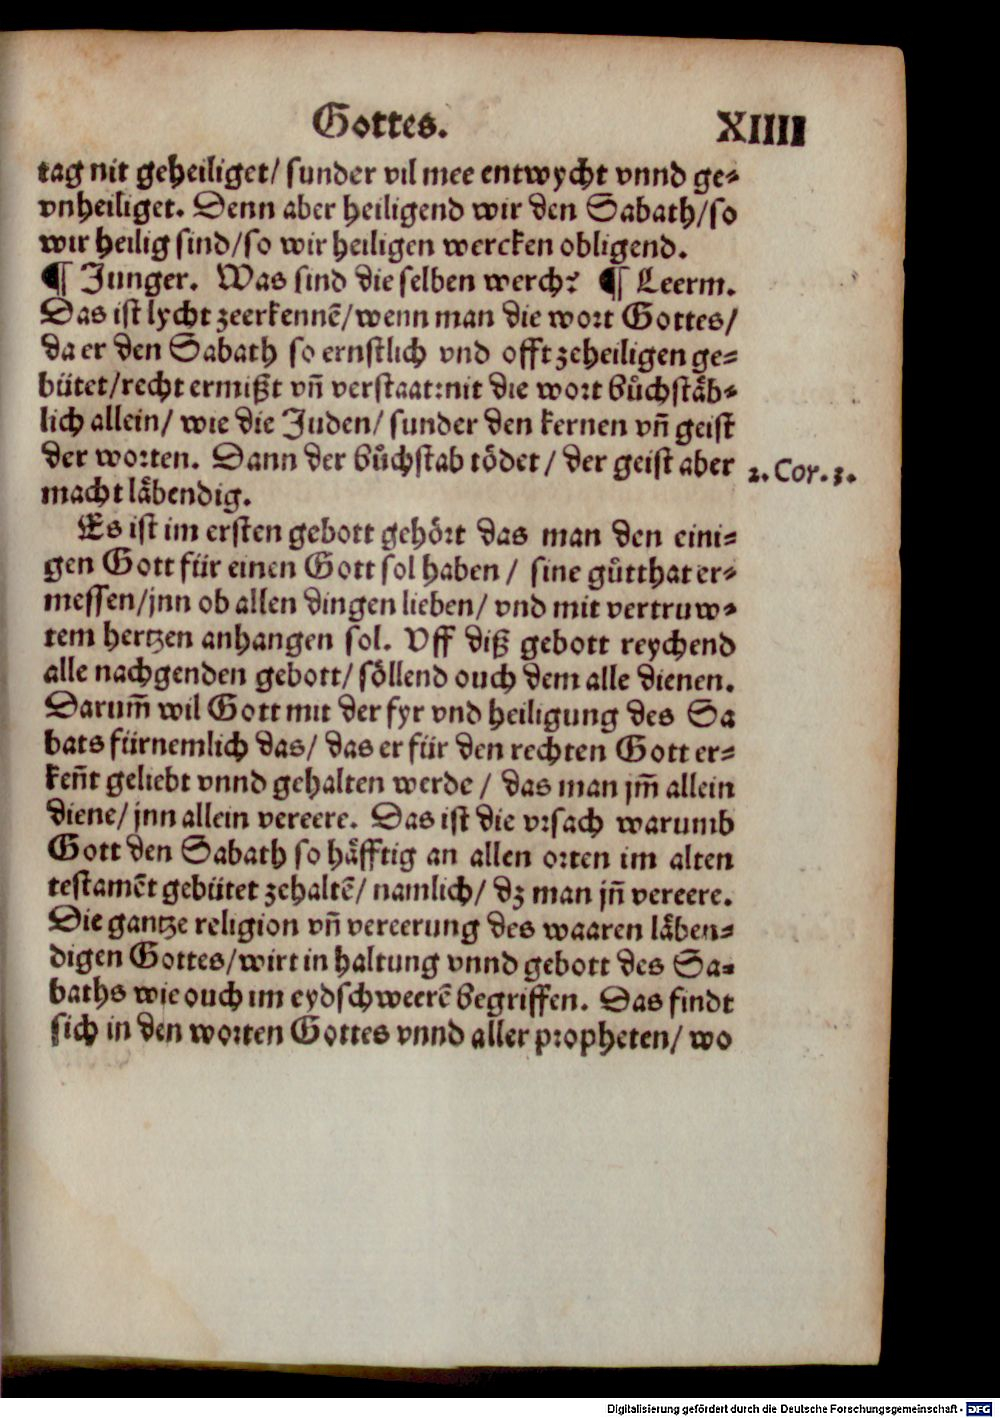 Gottes. XIIII
tag nit geheiliget/ sunder vil mee entwycht vnnd ge⸗
vnheiliget. Denn aber heiligend wir den Sabath/so
wir heilig sind/so wir heiligen wercken obligend.
¶ Junger. Was sind die selben werch? ¶ Leerm.
Das ist lycht zeerkennē/wenn man die wort Gottes/
da er den Sabath so ernstlich vnd offt zeheiligen ge⸗
bütet/recht ermißt vn̄ verstaat:nit die wort bůchståb⸗
lich allein/ wie die Juden/ sunder den kernen vn̄ geist
der worten. Dann der bůchstab tödet/ der geist aber
2. Cor. 3.
macht låbendig.
Es ist im ersten gebott gehört das man den eini⸗
gen Gott für einen Gott sol haben/ sine gůtthat er⸗
messen/jnn ob allen dingen lieben/ vnd mit vertruw⸗
tem hertzen anhangen sol. Vff diß gebott reychend
alle nachgenden gebott/ söllend ouch dem alle dienen.
Darum̄ wil Gott mit der fyr vnd heiligung des Sa
bats fürnemlich das/ das er für den rechten Gott er⸗
ken̄t geliebt vnnd gehalten werde/ das man jm̄ allein
diene/ jnn allein vereere. Das ist die vrsach warumb
Gott den Sabath so håfftig an allen orten im alten
testamēt gebütet zehaltē/ namlich/ dz man jn̄ vereere.
Die gantze religion vn̄ vereerung des waaren låben⸗
digen Gottes/wirt in haltung vnnd gebott des Sa⸗
baths wie ouch im eydschweerē begriffen. Das findt
sich in den worten Gottes vnnd aller propheten/ wo
Digitalisierung gefördert durch die Deutsche Forschungsgemeinschaft - DFG